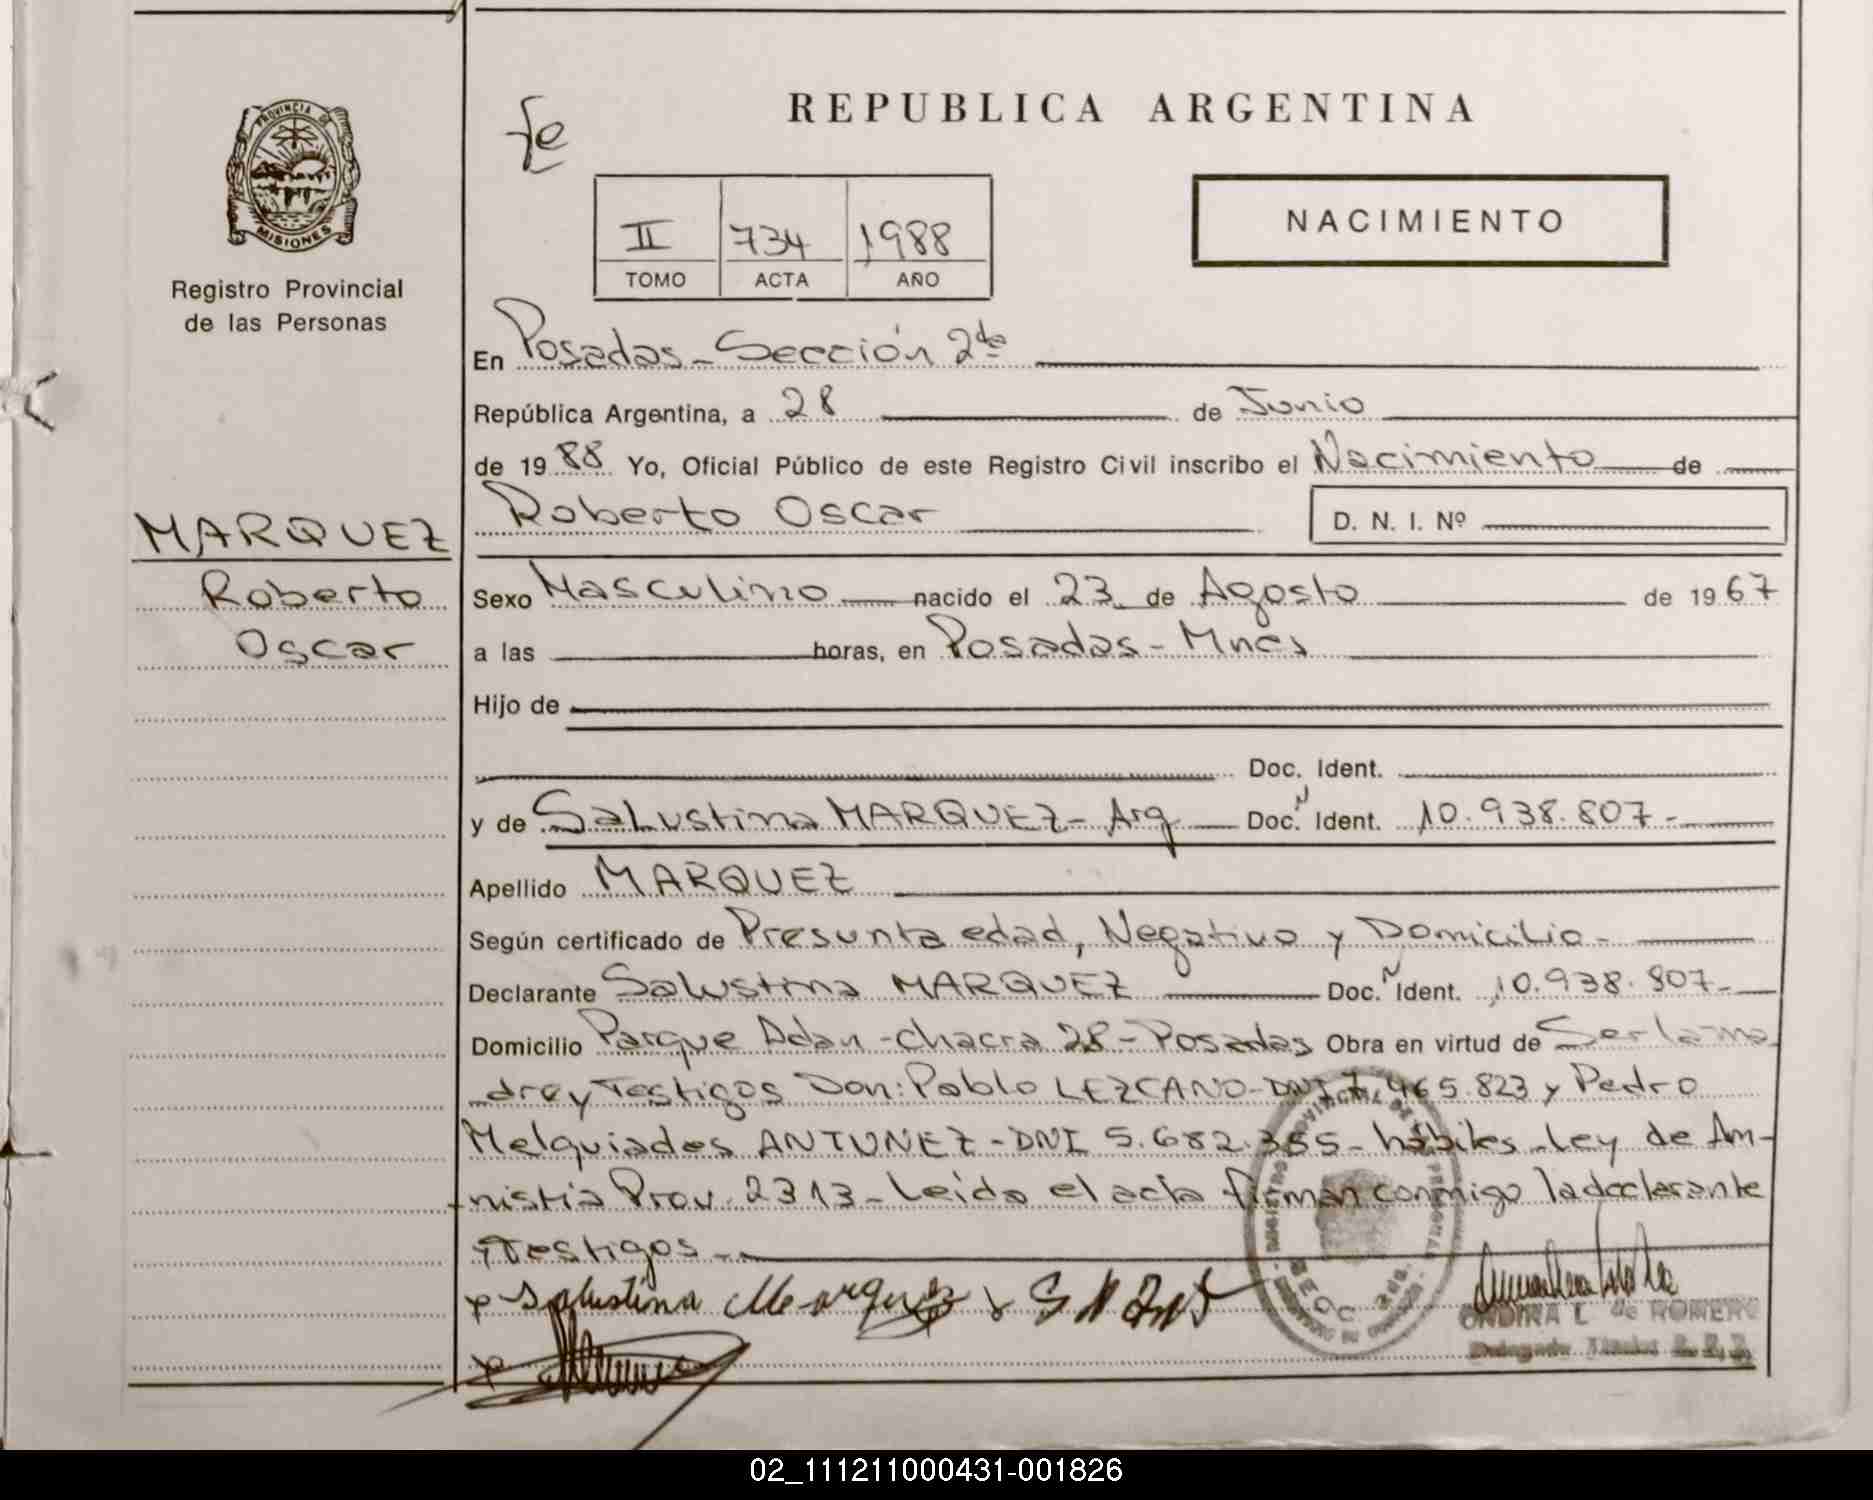 REPUBLICA ARGENTINA
PROVINCIA DE
MISIONES
Registro Provincial
de las Personas
fe
II 734 1988
TOMO ACTA AÑO
NACIMIENTO
En Posadas - Sección 2da
República Argentina, a 28 de Junio
de 1988 Yo, Oficial Público de este Registro Civil inscribo el Nacimiento de
Roberto Oscar D. N. I. Nº
MARQUEZ
Roberto
Oscar
Sexo Masculino nacido el 23 de Agosto de 1967
a las horas, en Posadas - Mnes
Hijo de
Doc. Ident.
y de Salustina MARQUEZ - Arg Doc. N Ident. 10.938.807-
Apellido MARQUEZ
Según certificado de Presunta edad, Negativo y Domicilio-
Declarante Salustina MARQUEZ Doc. N Ident. 10.938.807-
Domicilio Parque Adan - chacra 28 - Posadas Obra en virtud de Ser la ma
dre y Testigos Don: Pablo LEZCANO - DNI 7.465.823 y Pedro
Melquiades ANTUNEZ - DNI 5.682.355 - hábiles - Ley de Am-
nistia Prov. 2313 - Leida el acta firman conmigo la declarante
y Testigos -
Salustina Marquez
ONDINA L de ROMERO
02_111211000431-001826